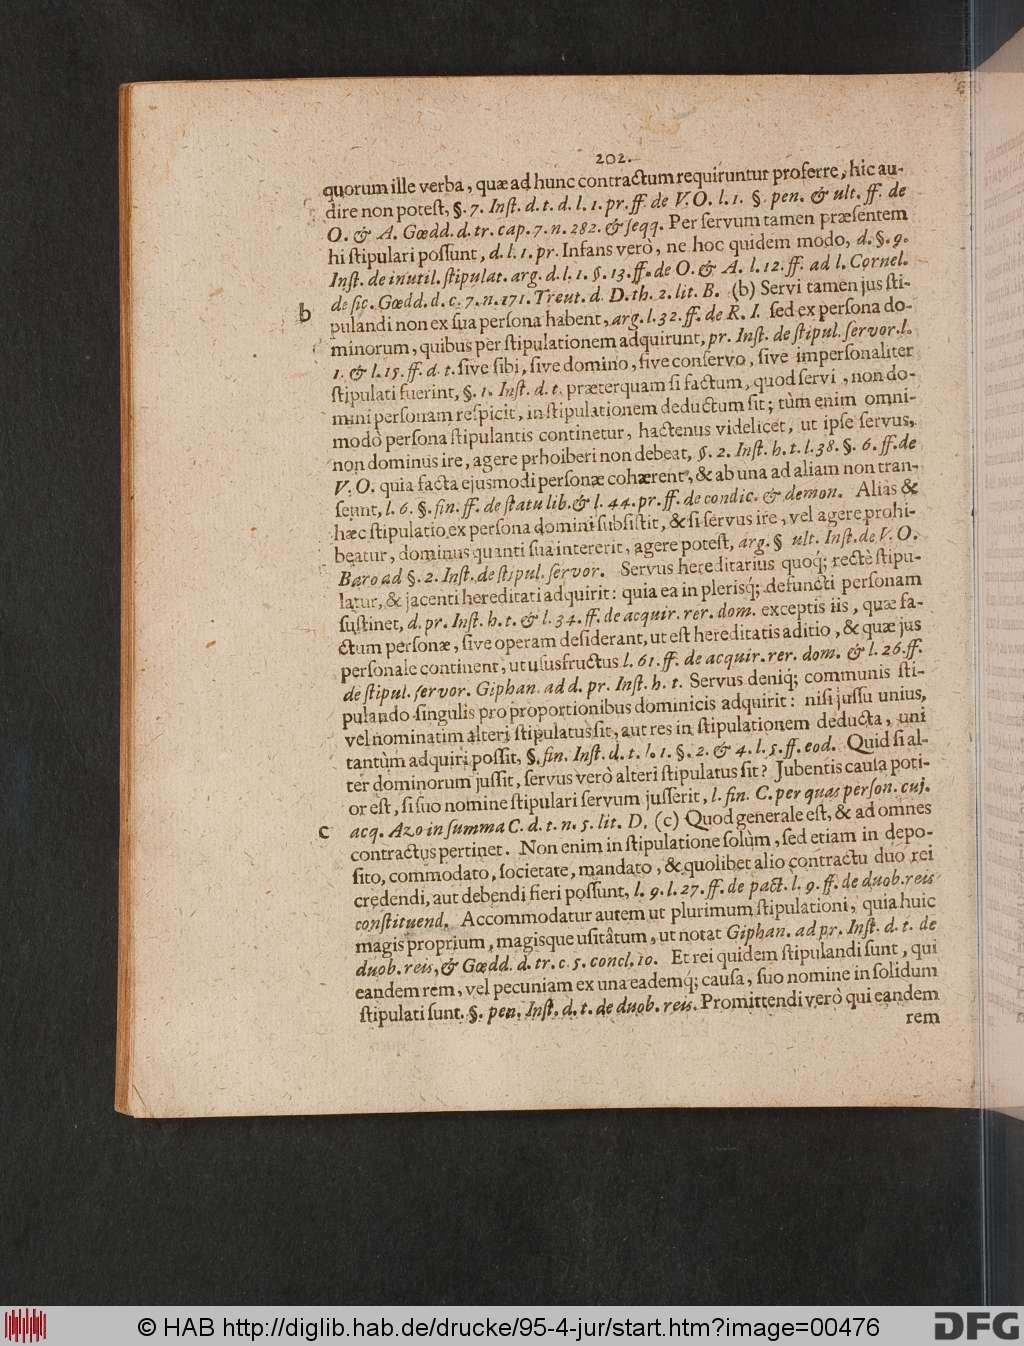 202.
quorum ille verba, quæ ad hunc contractum requiruntur proferre, hic au-
dire non potest, §. 7. Inst. d. t. d. l. 1. pr. ff. de V. O. l. 1. §. pen. & ult. ff. de
O. & A. Gœdd. d. tr. cap. 7. n. 282. & seqq. Per servum tamen præsentem
hi stipulari possunt, d. l. 1. pr. Infans verò, ne hoc quidem modo, d. §. 9.
Inst. de inutil. stipulat. arg. d. l. 1. §. 13. ff. de O. & A. l. 12. ff. ad l. Cornel.
de sic. Gœdd. d. c. 7. n. 171. Treut. d. D. th. 2. lit. B. (b) Servi tamen jus sti-
b
pulandi non ex sua persona habent, arg. l. 32. ff. de R. I. sed ex persona do-
minorum, quibus per stipulationem adquirunt, pr. Inst. de stipul. servor. l.
1. & l. 15. ff. d. t. sive sibi, sive domino, sive conservo, sive impersonaliter
stipulati fuerint, §. 1. Inst. d. t. præterquam si factum, quod servi, non do-
mini personam respicit, in stipulationem deductum sit; tùm enim omni-
modò persona stipulantis continetur, hactenus videlicet, ut ipse servus,
non dominus ire, agere prhoiberi non debeat, §. 2. Inst. h. t. l. 38. §. 6. ff. de
V. O. quia facta ejusmodi personæ cohærent, & ab una ad aliam non tran-
seunt, l. 6. §. fin. ff. de statu lib. & l. 44. pr. ff. de condic. & demon. Alias &
hæc stipulatio ex persona domini subsistit, & si servus ire, vel agere prohi-
beatur, dominus quanti sua intererit, agere potest, arg. § ult. Inst. de V. O.
Baro ad §. 2. Inst. de stipul. servor. Servus hereditarius quoq́; rectè stipu-
latur, & jacenti hereditati adquirit: quia ea in plerisq́; defuncti personam
sustinet, d. pr. Inst. h. t. & l. 34. ff. de acquir. rer. dom. exceptis iis, quæ fa-
ctum personæ, sive operam desiderant, ut est hereditatis aditio, & quæ jus
personale continent, ut ususfructus l. 61. ff. de acquir. rer. dom. & l. 26. ff.
de stipul. servor. Giphan. ad d. pr. Inst. h. t. Servus deniq́; communis sti-
pulando singulis pro proportionibus dominicis adquirit: nisi jussu unius,
vel nominatim alteri stipulatus sit, aut res in stipulationem deducta, uni
tantùm adquiri possit, §. fin. Inst. d. t. l. 1. §. 2. & 4. l. 5. ff. eod. Quid si al-
ter dominorum jussit, servus verò alteri stipulatus sit? Jubentis causa poti-
or est, si suo nomine stipulari servum jusserit, l. fin. C. per quas person. cuj.
c
acq. Azo in summa C. d. t. n. 5. lit. D. (c) Quod generale est, & ad omnes
contractus pertinet. Non enim in stipulatione solùm, sed etiam in depo-
sito, commodato, societate, mandato, & quolibet alio contractu duo rei
credendi, aut debendi fieri possunt, l. 9. l. 27. ff. de pact. l. 9. ff. de duob. reis
constituend. Accommodatur autem ut plurimum stipulationi, quia huic
magis proprium, magisque usitâtum, ut notat Giphan. ad pr. Inst. d. t. de
duob. reis, & Gœdd. d. tr. c. 5. concl. 10. Et rei quidem stipulandi sunt, qui
eandem rem, vel pecuniam ex una eademq́; causa, suo nomine in solidum
stipulati sunt. §. pen. Inst. d. t. de duob. reis. Promittendi verò qui eandem
rem
© HAB http://diglib.hab.de/drucke/95-4-jur/start.htm?image=00476
DFG